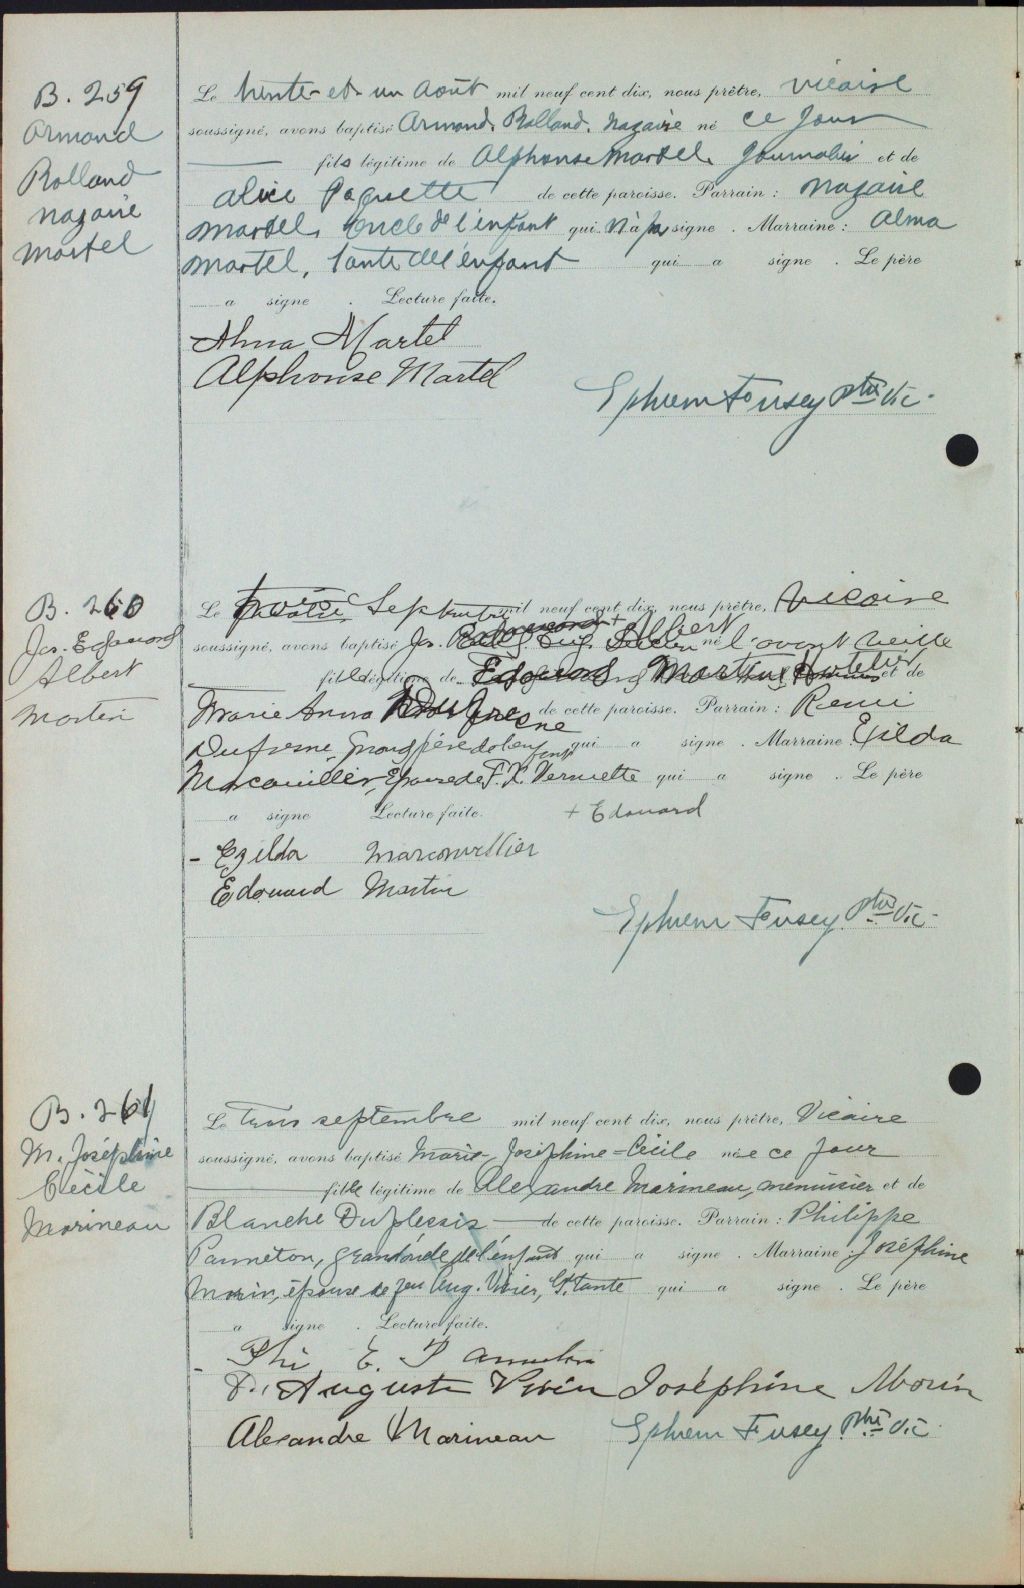 B. 259
Armand
Rolland
Nazaire
Martel
Le trente-et-un Août mil neuf cent dix, nous prêtre, vicaire
soussigné, avons baptisé Armand. Rolland. Nazaire né ce jour
fils légitime de Alphonse Martel, journalier et de
Alice Paquette de cette paroisse. Parrain : Nazaire
Martel, oncle de l'enfant qui n'a pas signe . Marraine : Alma
Martel, tante de l'enfant qui a signe . Le père
a signe . Lecture faite.
Alma Martel
Alphonse Martel
Ephrem Fusey ptre vic.
B. 260
Jos. Edouard
Albert
Martin
Le Septembre mil neuf cent dix, nous prêtre, Vicaire
soussigné, avons baptisé Jos. + Albert né l'avant veille
fils légitime de Martin et de
Marie Anna Dufresne de cette paroisse. Parrain : Rémi
Dufresne, grand père de l'enfant qui a signe . Marraine : Exilda
Marcouiller, épouse de F. X. Verrette qui a signe . Le père
a signe Lecture faite. + Edouard
- Exilda Marcouillier
Edouard Martin
Ephrem Fusey ptre vic.
B. 261
M. Joséphine
Cécile
Marineau
Le trois septembre mil neuf cent dix, nous prêtre, Vicaire
soussigné, avons baptisé Marie-Joséphine-Cécile née ce jour
fille légitime de Alexandre Marineau, menuisier et de
Blanche Duplessis de cette paroisse. Parrain : Philippe
Panneton, grand oncle de l'enfant qui a signe . Marraine : Joséphine
Morin, épouse de feu Aug. Vivier, Gr. tante qui a signe . Le père
a signe . Lecture faite.
- Phi E. Panneton
D. Auguste Vivier Joséphine Morin
Alexandre Marineau Ephrem Fusey ptre vic.